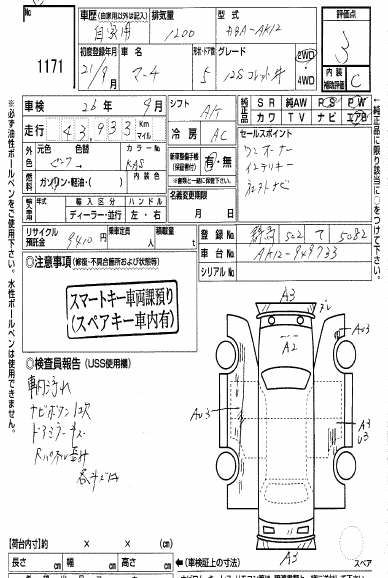 車歴 (自家用以外は記入)
排気量
型式
評価点
1171
自家用
1200
DBA-AK12
3
初度登録年月
車名
形状・ドア数
グレード
2WD
・
4WD
内装
補助評価
C
21/9月
マーチ
5
12S コレット
車検
26年 9月
シフト
A/T
純正品
SR 純AW PS PW
カワ TV ナビ エアB
走行
43,933
Km
マイル
冷房
AC
セールスポイント
ワンオーナー
インテリキー
外色
元色
色替
カラーNo
ピンク
KAS
新車整備手帳
(保証書付)
有・無
(書類と一緒に保管され度)
燃料
ガソリン・軽油・( )
内装色
名義変更期限
月 日
輸入車
年式
輸入区分
ハンドル
ディーラー・並行
左・右
リサイクル
預託金
9410円
乗車定員
人
積載量
t
登録No
群馬 502 て 5082
車台No
AK12-949733
シリアルNo
◎注意事項 (修復・不具合箇所および状態等)
スマートキー車両課預り
(スペアキー車内有)
◎検査員報告 (USS使用欄)
車内汚れ
ナビボタン
ドアミラーキズ
A3
A2
AU3
AU3
A3
U3
A3
【荷台内寸】約 × ×
長さ cm 幅 cm 高さ cm
←(車検証上の寸法)
スペア
※必ず油性ボールペンをご使用下さい。水性ボールペンは使用できません。
←純正品に限り該当に○をつけて下さい。